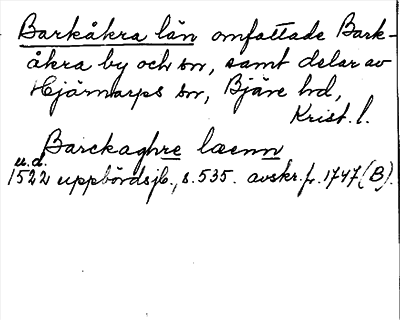 Barkåkra län omfattade Bark-
åkra by och sn, samt delar av
Hjärnarps sn, Bjäre hd,
Krist. l.
Barckaghre læenn
u.d.
1522 uppbördsjb., s. 535. avskr. fr. 1747 (B).